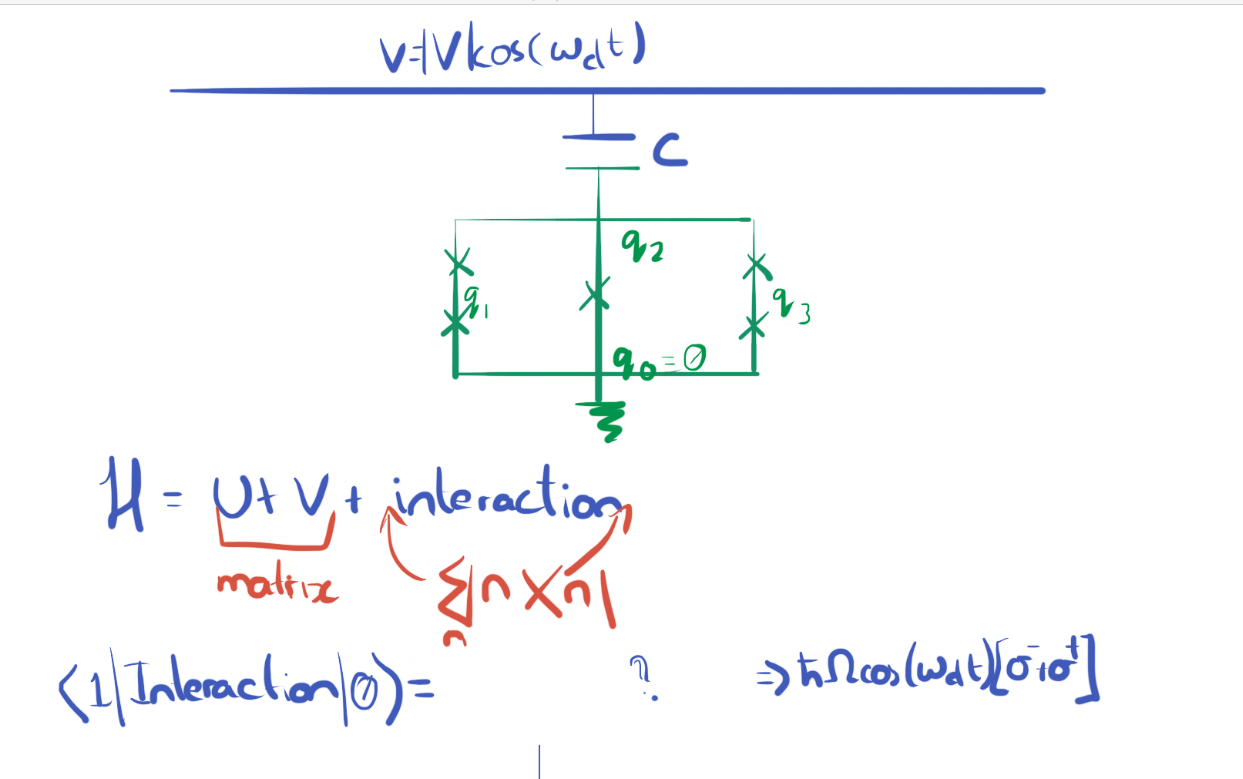 V=|V|cos(ω_d t)
C
q_2
q_1
q_3
q_0=0
H = U+V+ interaction
matrix
Σ_n |n><n|
<1|Interaction|0>= ? ⇒ħΩcos(ω_d t)[σ^-+σ^+]